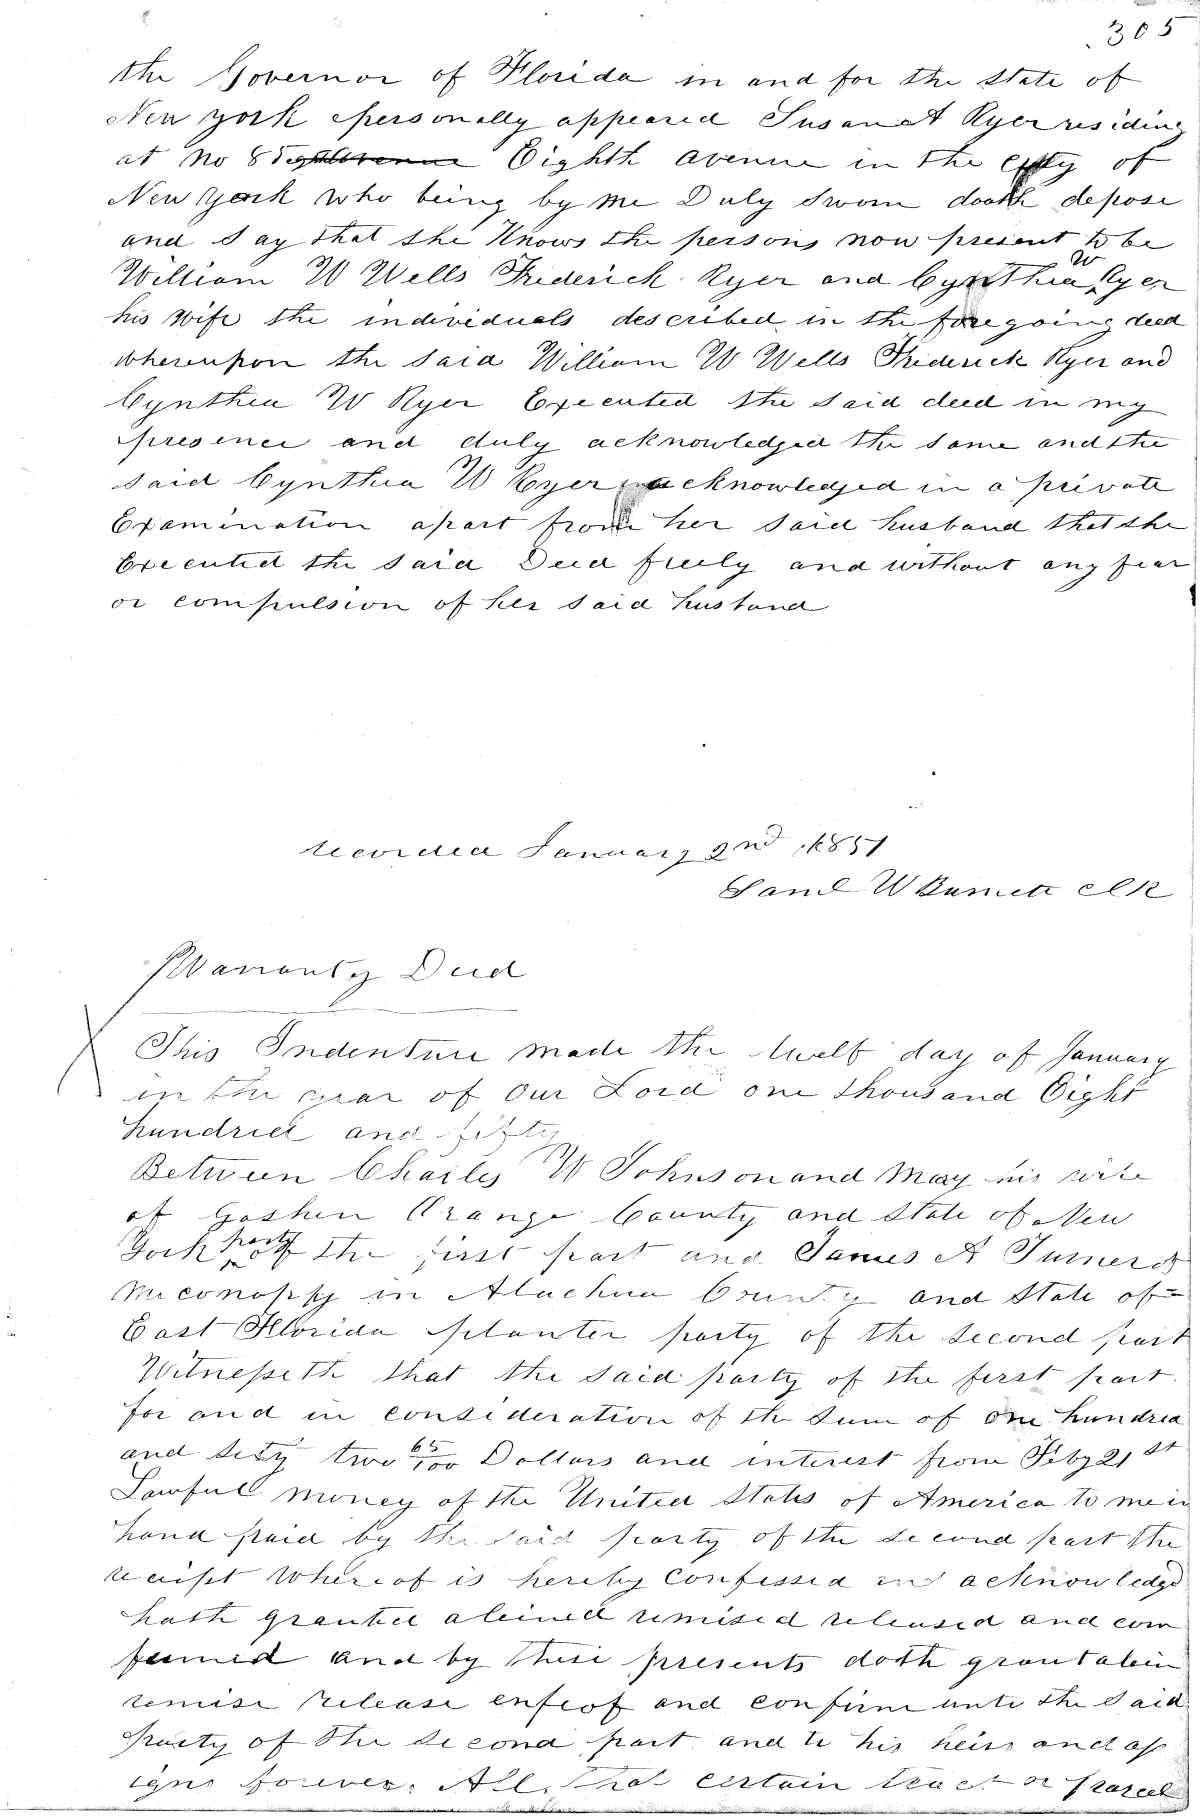 305
the Governor of Florida in and for the state of
New York personally appeared Susan A Ryer residing
at No 8 Eighth Avenue Eighth Avenue in the city of
New York who being by me Duly sworn doath depose
and say that she Knows the persons now present to be
William W Wells Frederick Ryer and Cynthia W Ryer
his wife the individuals described in the foregoing deed
whereupon the said William W Wells Frederick Ryer and
Cynthia W Ryer Executed the said deed in my
presence and duly acknowledged the same and the
said Cynthia W Ryer acknowledged in a private
Examination apart from her said husband that she
Executed the said Deed freely and without any fear
or compulsion of her said husband
recorded January 2nd 1851
Saml W Burnett clk
Warranty Deed
This Indenture made the twelf day of January
in the year of our Lord one thousand Eight
hundred and fifty
Between Charles W Johnson and Mary his wife
of Goshen Orange County and State of New
York party of the first part and James A Turner of
Miconoppy in Alachua County and State of
East Florida planter party of the second part
Witnesseth that the said party of the first part
for and in consideration of the sum of one hundred
and sixty two 65/100 Dollars and interest from Feby 21st
Lawful money of the United States of America to me in
hand paid by the said party of the second part the
receipt Whereof is hereby confessed and acknowledged
hath granted aleined remised released and con
firmed and by these presents doth grant alein
remise release enfeof and confirm unto the said
party of the second part and to his heirs and as
signs forever. All that certain tract or parcel